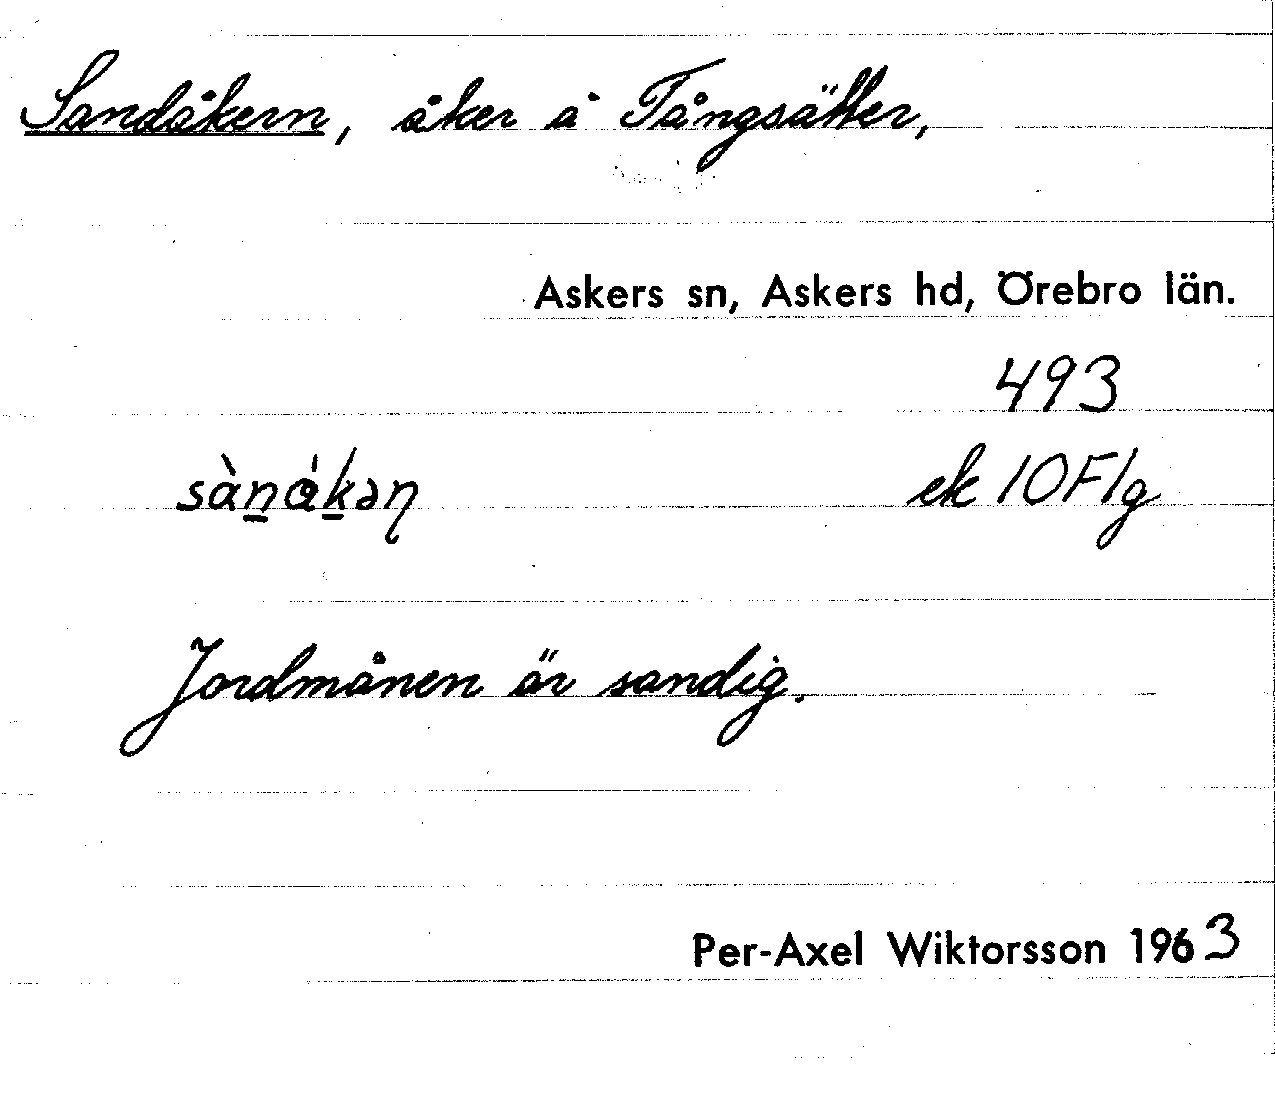 Sandåkern, åker å Tångsätter,
Askers sn, Askers hd, Örebro län.
493
sàn̲ɑ́k̲əɳ ek 10F1g
Jordmånen är sandig.
Per-Axel Wiktorsson 1963